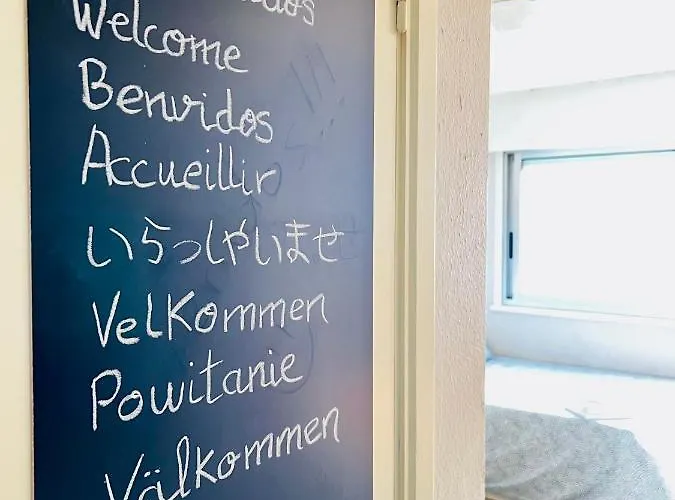 Welcome
Benvidos
Accueillir
いらっしゃいませ
Velkommen
Powitanie
Välkommen